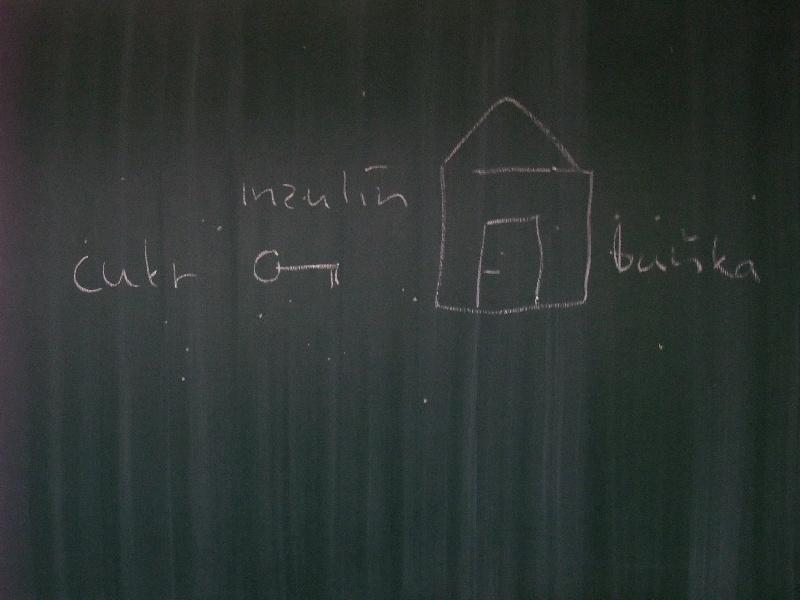 inzulín
cukr
buňka